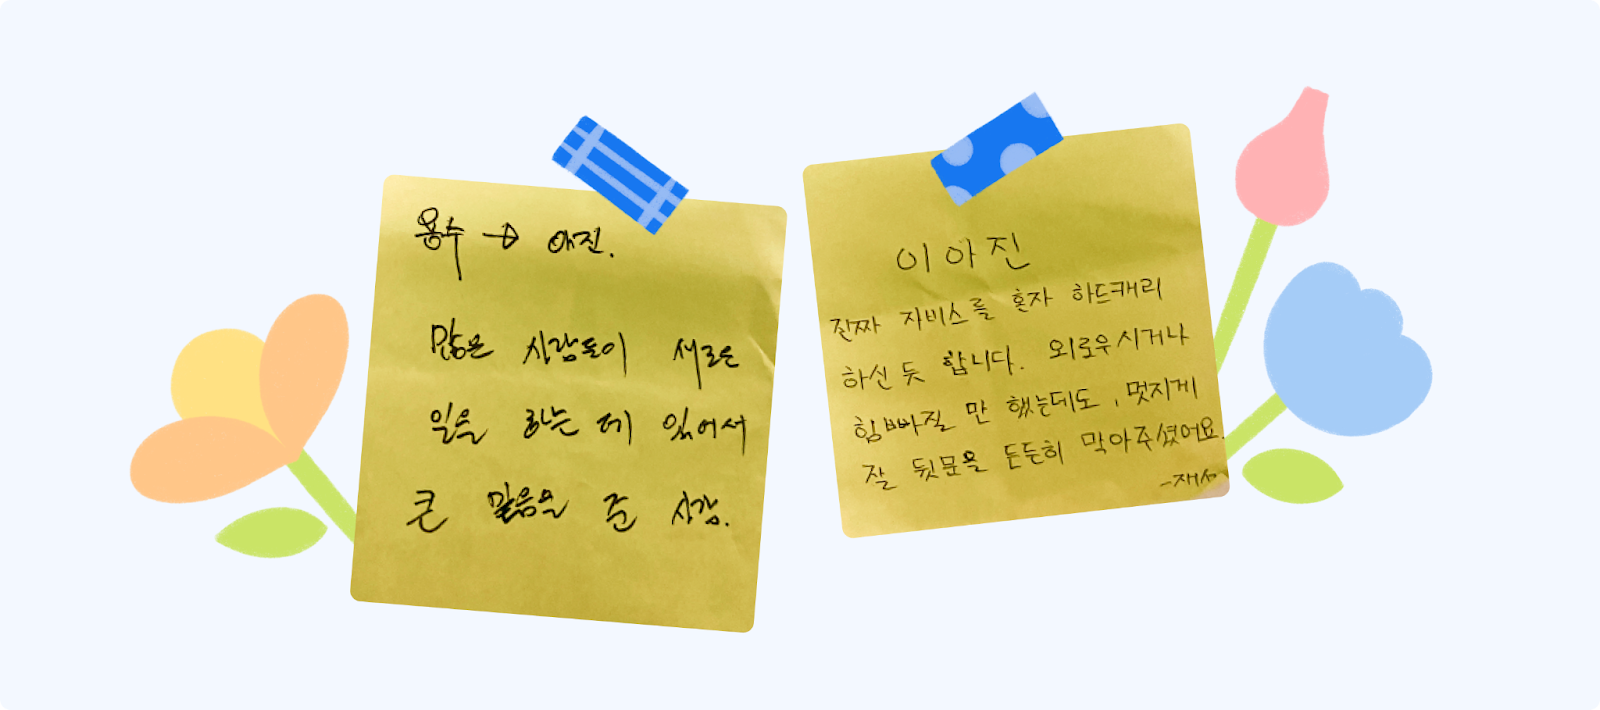 용수 → 아진.
많은 사람들이 새로운
일을 하는 데 있어서
큰 믿음을 준 사람.
이아진
진짜 자비스를 혼자 하드캐리
하신 듯 합니다. 외로우시거나
힘빠질 만 했는데도, 멋지게
잘 뒷문을 든든히 막아주셨어요.
-재성